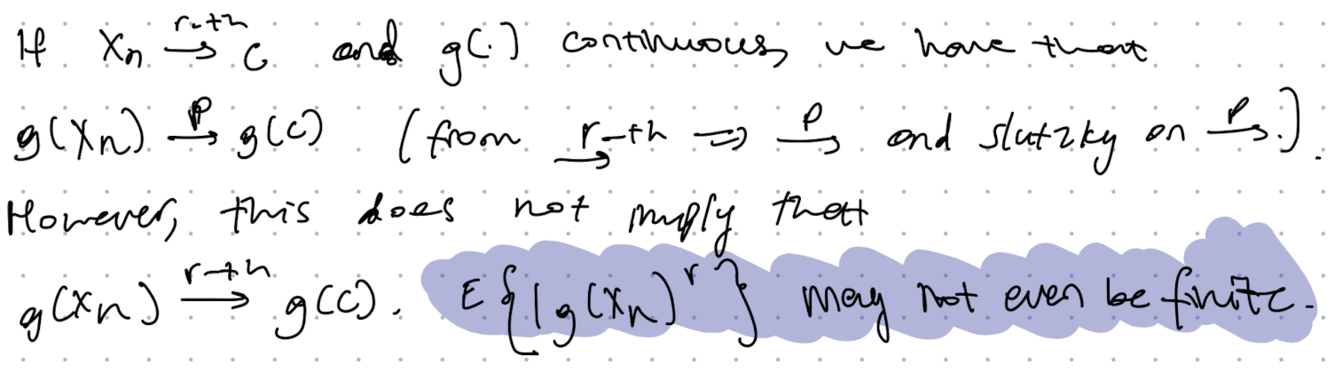 If Xn r-th→ c and g(.) continuous, we have that
g(Xn) P→ g(c) (from r-th→ ⇒ P→ and slutzky on P→.).
However, this does not imply that
g(Xn) r-th→ g(c). E{|g(Xn)^r} may not even be finite.